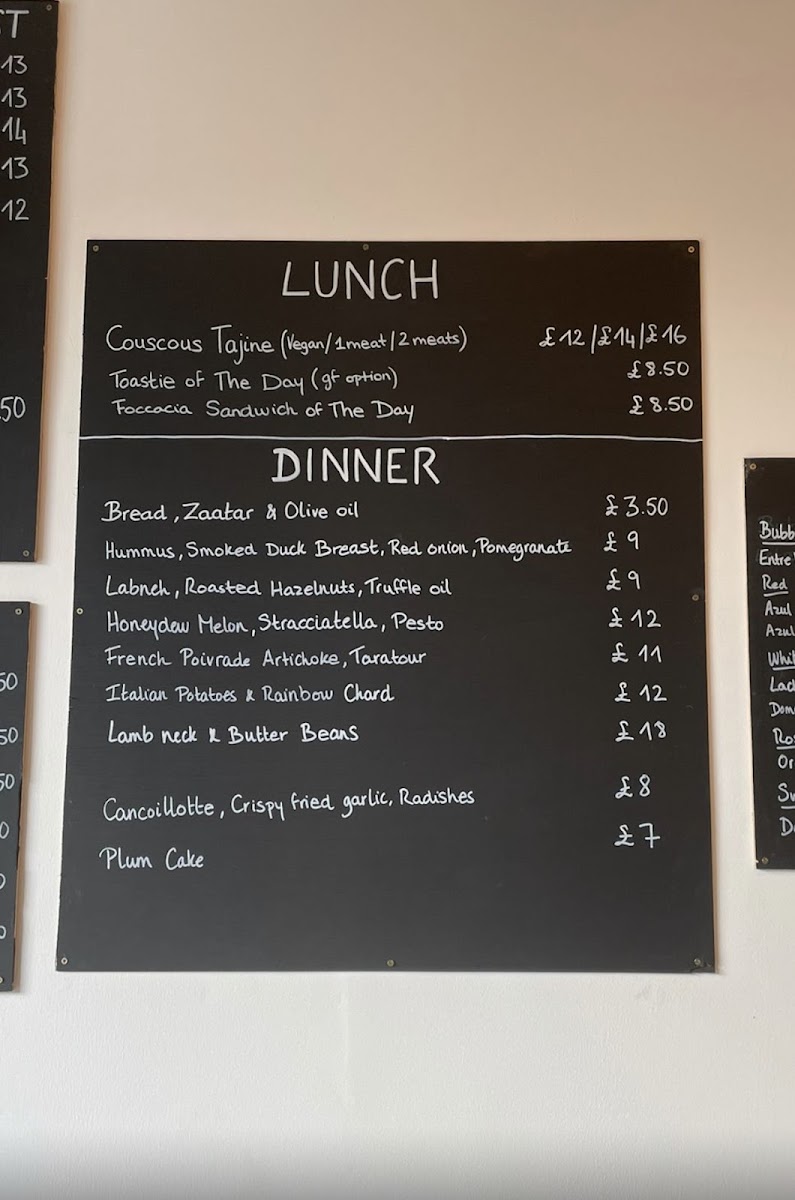 ST
13
13
14
13
12
50
50
50
50
0
0
0
LUNCH
Couscous Tajine (Vegan/1meat/2 meats) £12/£14/£16
Toastie of The Day (gf option) £8.50
Foccacia Sandwich of The Day £8.50
DINNER
Bread, Zaatar & Olive oil £3.50
Hummus, Smoked Duck Breast, Red onion, Pomegranate £9
Labneh, Roasted Hazelnuts, Truffle oil £9
Honeydew Melon, Stracciatella, Pesto £12
French Poivrade Artichoke, Taratour £11
Italian Potatoes & Rainbow Chard £12
Lamb neck & Butter Beans £18
Cancoillotte, Crispy fried garlic, Radishes £8
Plum Cake £7
Bubb
Entre
Red
Azul
Azul
Whit
Lad
Dom
Ros
Or
Sw